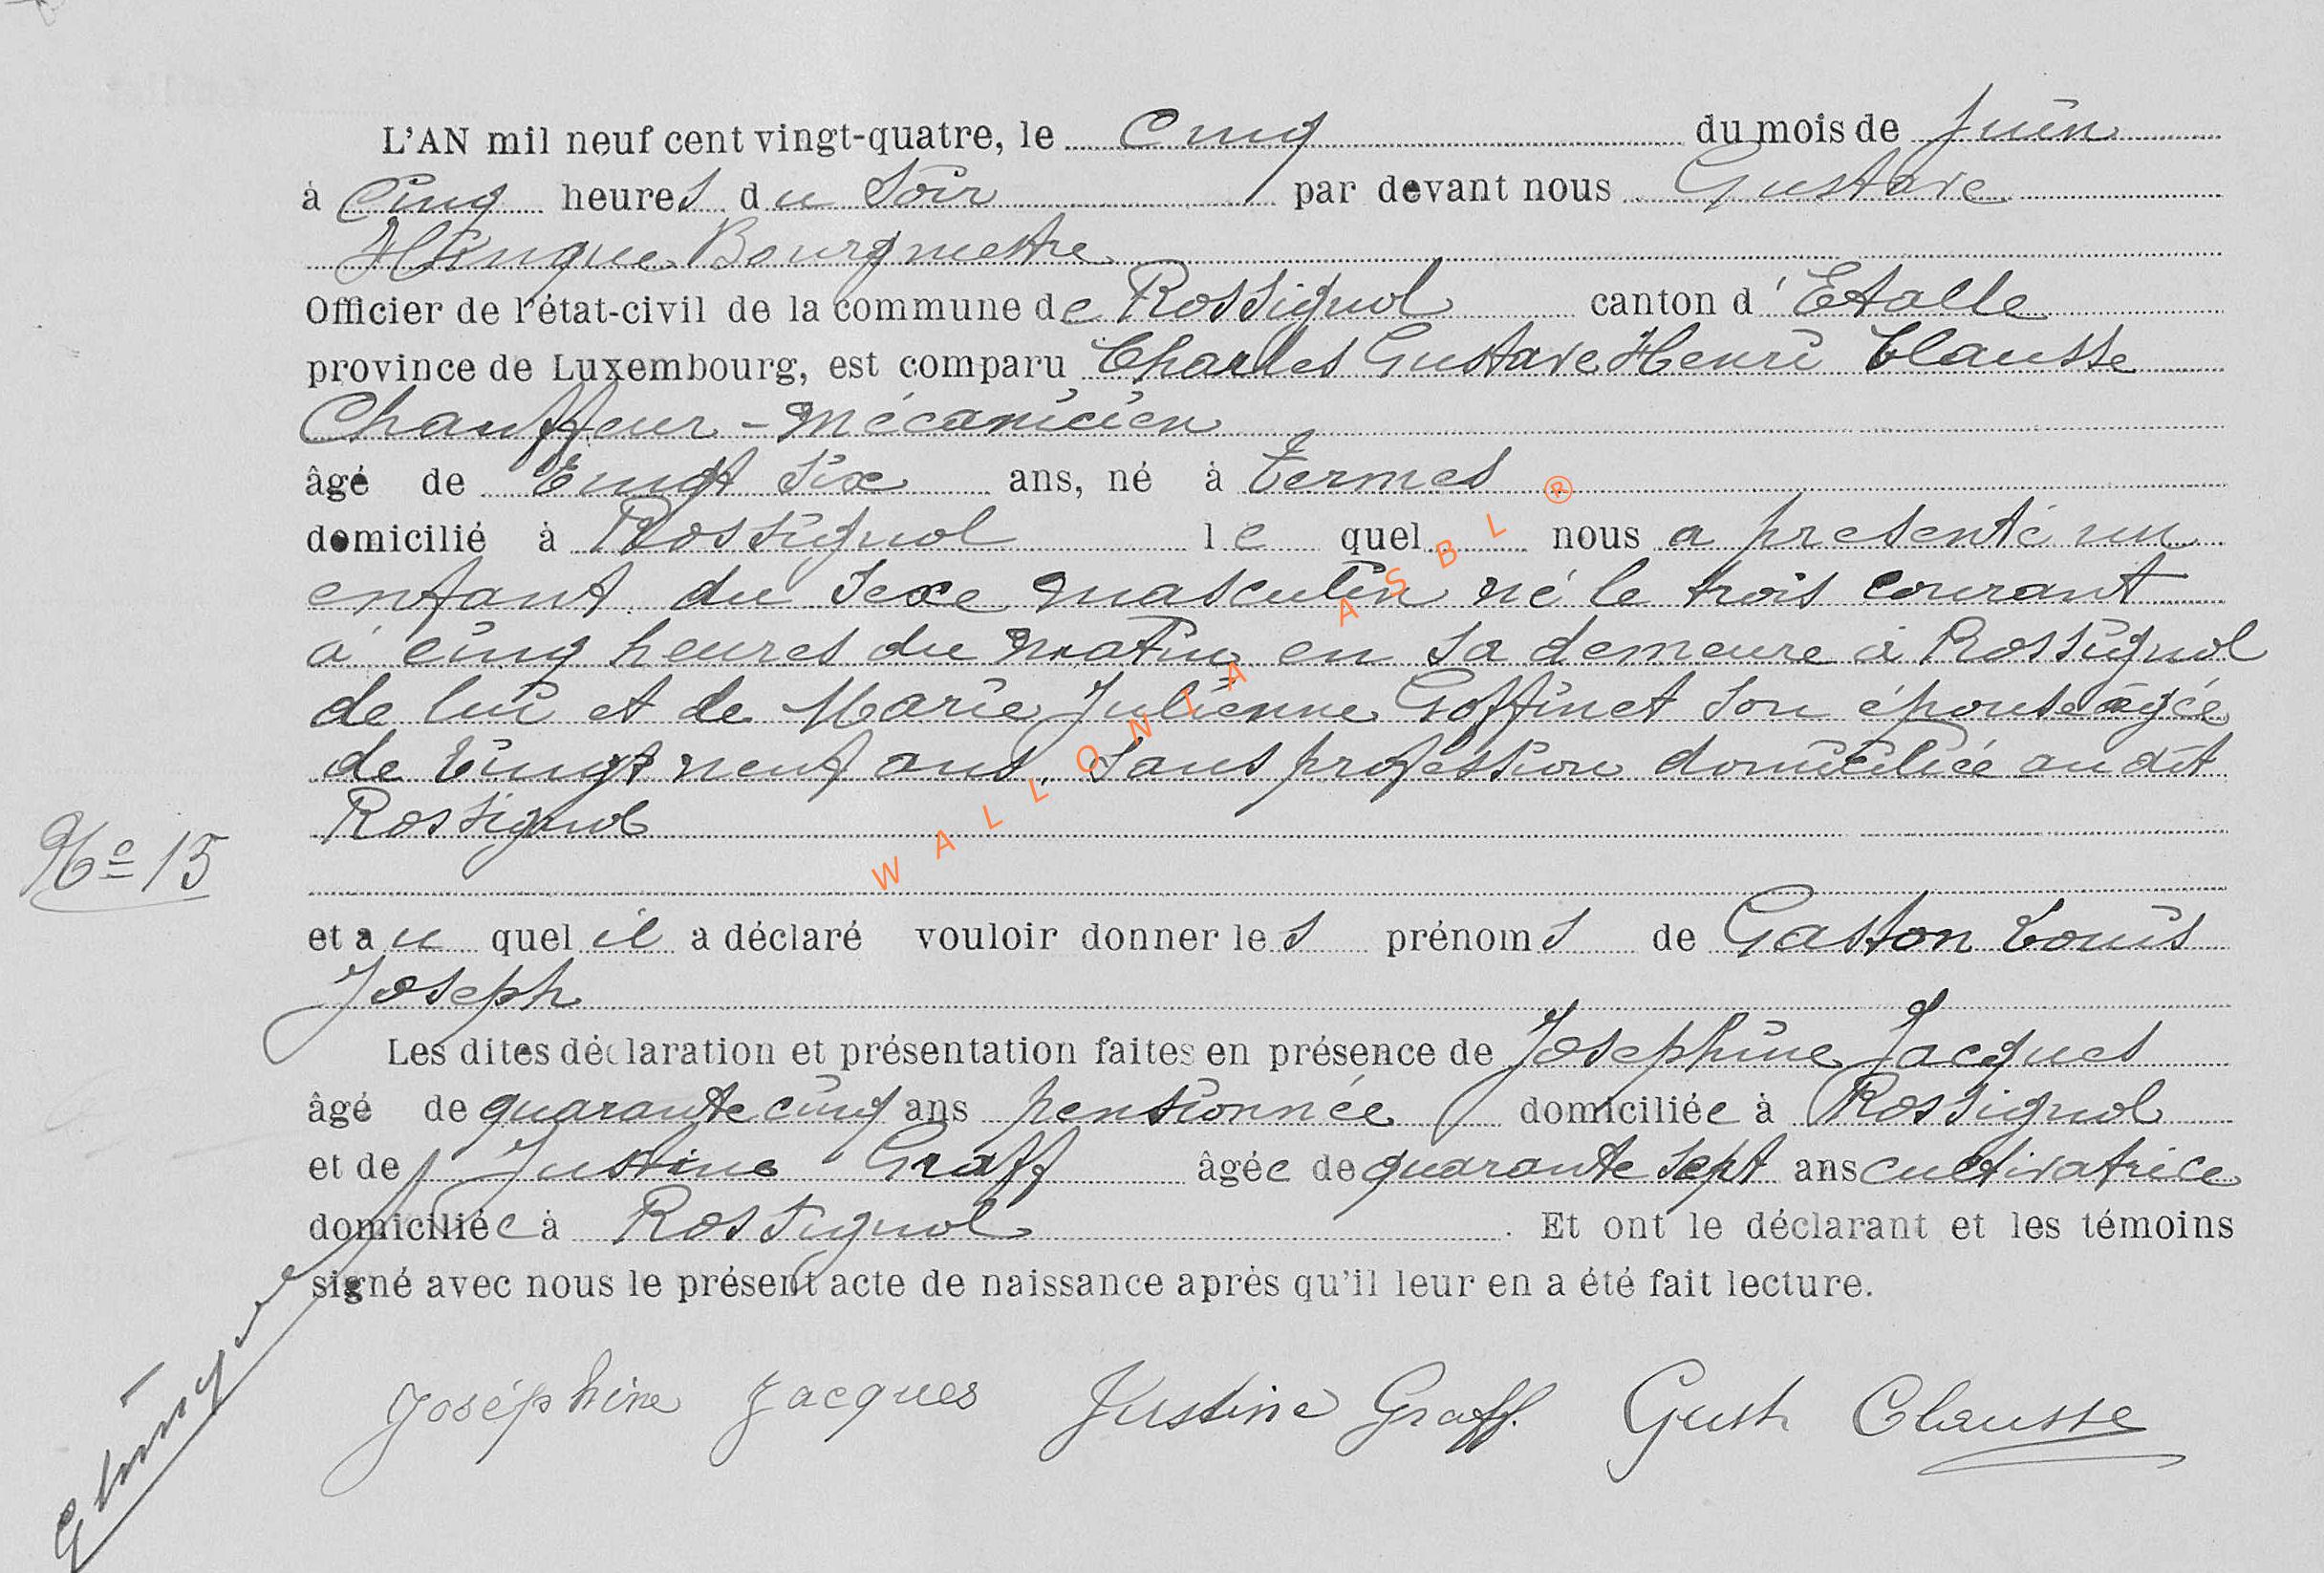 L'AN mil neuf cent vingt-quatre, le Cinq du mois de Juin
à Cinq heures du Soir par devant nous Gustave
Hsingue Bourgmestre
Officier de l'état-civil de la commune de Rossignol canton d'Etalle
province de Luxembourg, est comparu Charles Gustave Henri Clausse
Chauffeur-Mécanicien
âgé de Vingt Six ans, né à Termes
domicilié à Rossignol lequel nous a presenté un
enfant du Sexe masculin né le trois courant
à cinq heures du matin en sa demeure à Rossignol
de lui et de Marie Julienne Goffinet son épouse âgée
de Vingt neuf ans, Sans profession domiciliée audit
Rossignol
No 15
et au quel il a déclaré vouloir donner les prénoms de Gaston Louis
Joseph
Les dites déclaration et présentation faites en présence de Joséphine Jacques
âgé de quarante cinq ans pensionnée domiciliée à Rossignol
et de Justine Graff âgée de quarante sept ans cultivatrice
domiciliée à Rossignol. Et ont le déclarant et les témoins
signé avec nous le présent acte de naissance après qu'il leur en a été fait lecture.
Joséphine Jacques Justine Graff. Gust Clausse
WALLONIA ASBL ®